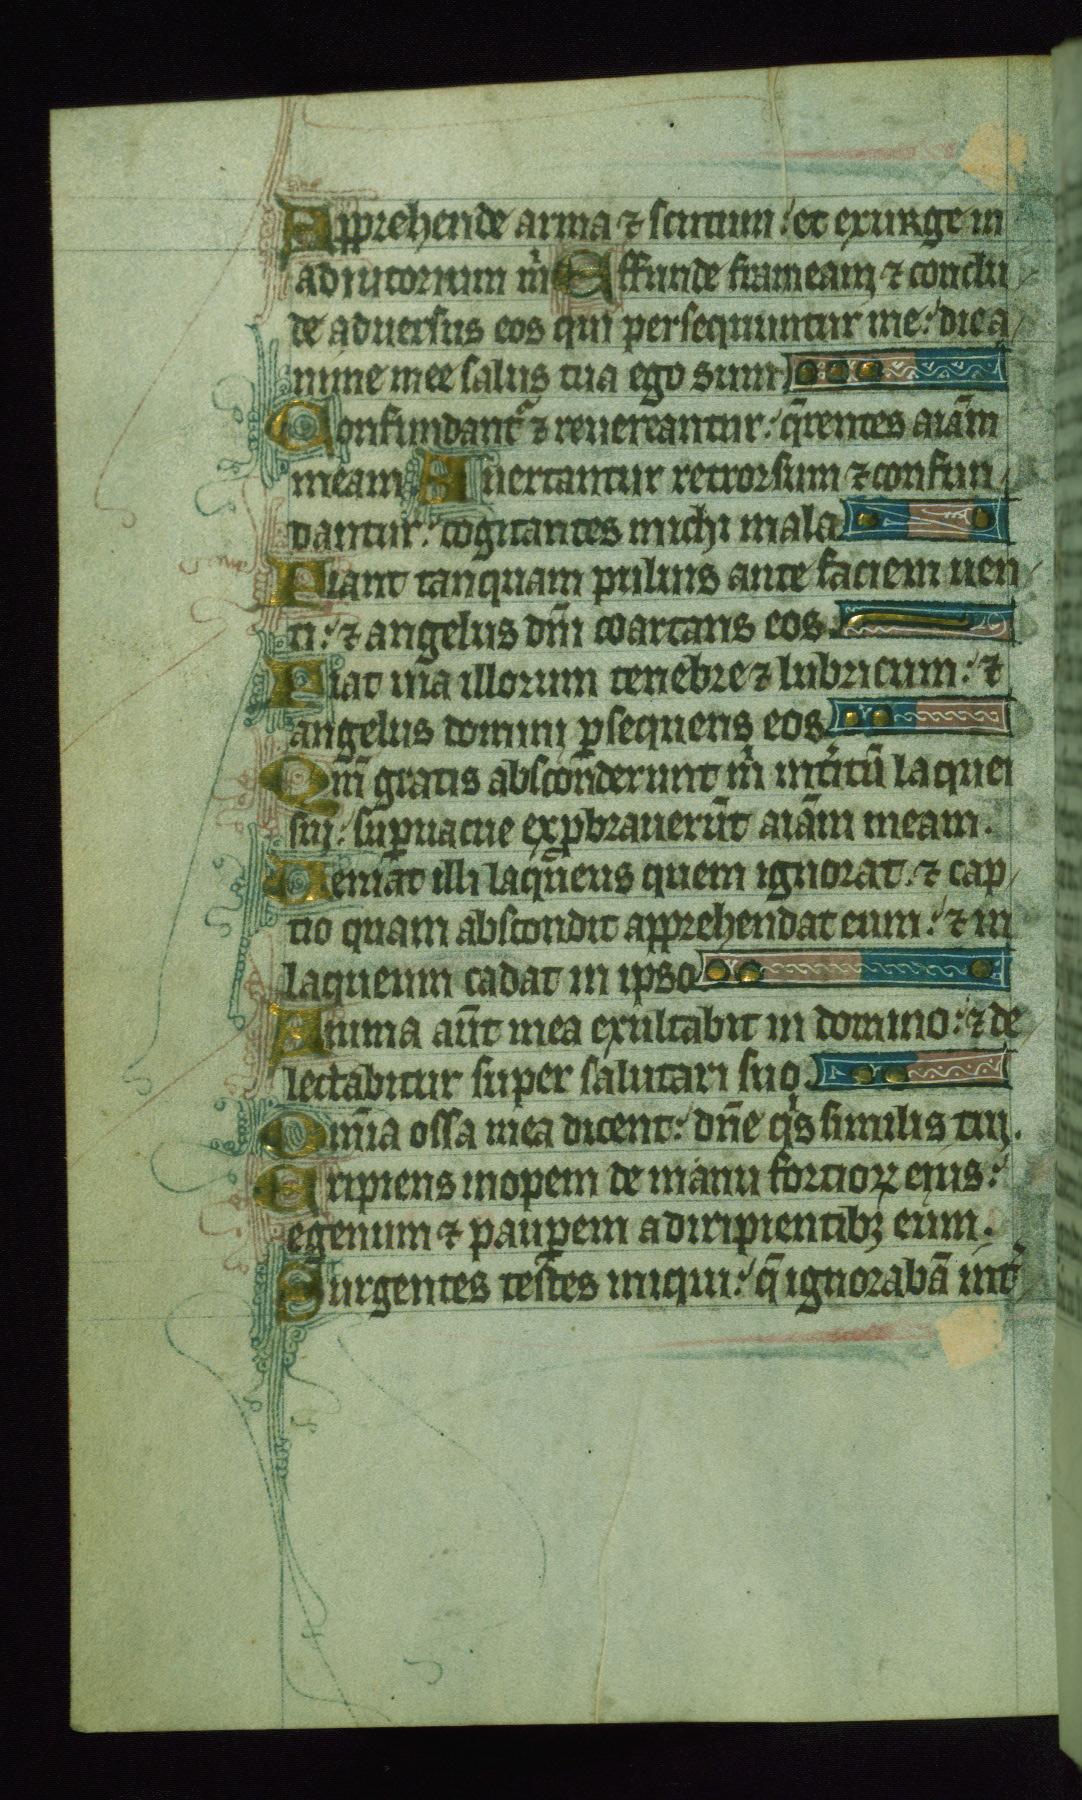 Apprehende arma ⁊ scutum: et exurge in
adiutorium m̄ Effunde frameam ⁊ conclu
de aduersus eos qui persequuntur me: dic a
nime mee salus tua ego sum
Confundant᷑ ⁊ reuereantur: q̄rentes aīam
meam Auertantur retrorsum ⁊ confun
dantur: cogitantes michi mala
Fiant tanquam puluis ante faciem uen
ti: ⁊ angelus dn̄i coartans eos
Fiat uia illorum tenebre ⁊ lubricum: ⁊
angelus domini ꝑsequens eos
Qm̄ gratis absconderunt m̄ int̄itū laquei
sui: suꝑuacue exꝓbrauerūt aīam meam.
Ueniat illi laq̄ueus quem ignorat. ⁊ cap
tio quam abscondit apprehendat eum: ⁊ in
laqueum cadat in ipso
Anima aūt mea exultabit in domino: ⁊ de
lectabitur super salutari suo.
Om̄ia ossa mea dicent: dn̄e q̇s similis tui.
Eripiens inopem de manu fortioꝝ eius:
egenum ⁊ pauꝑem a diripientibꝫ eum.
Surgentes testes iniqui: q̄ ignorabā int̄